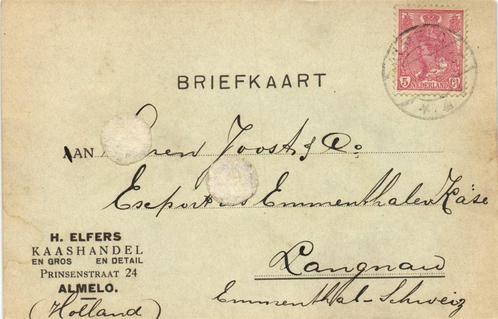 BRIEFKAART
5 Ct
NEDERLAND
AAN Joost & Co.
Export Emmenthaler Käse
Langnau
Emmenthal-Schweiz
H. ELFERS
KAASHANDEL
EN GROS EN DETAIL
PRINSENSTRAAT 24
ALMELO.
(Holland)